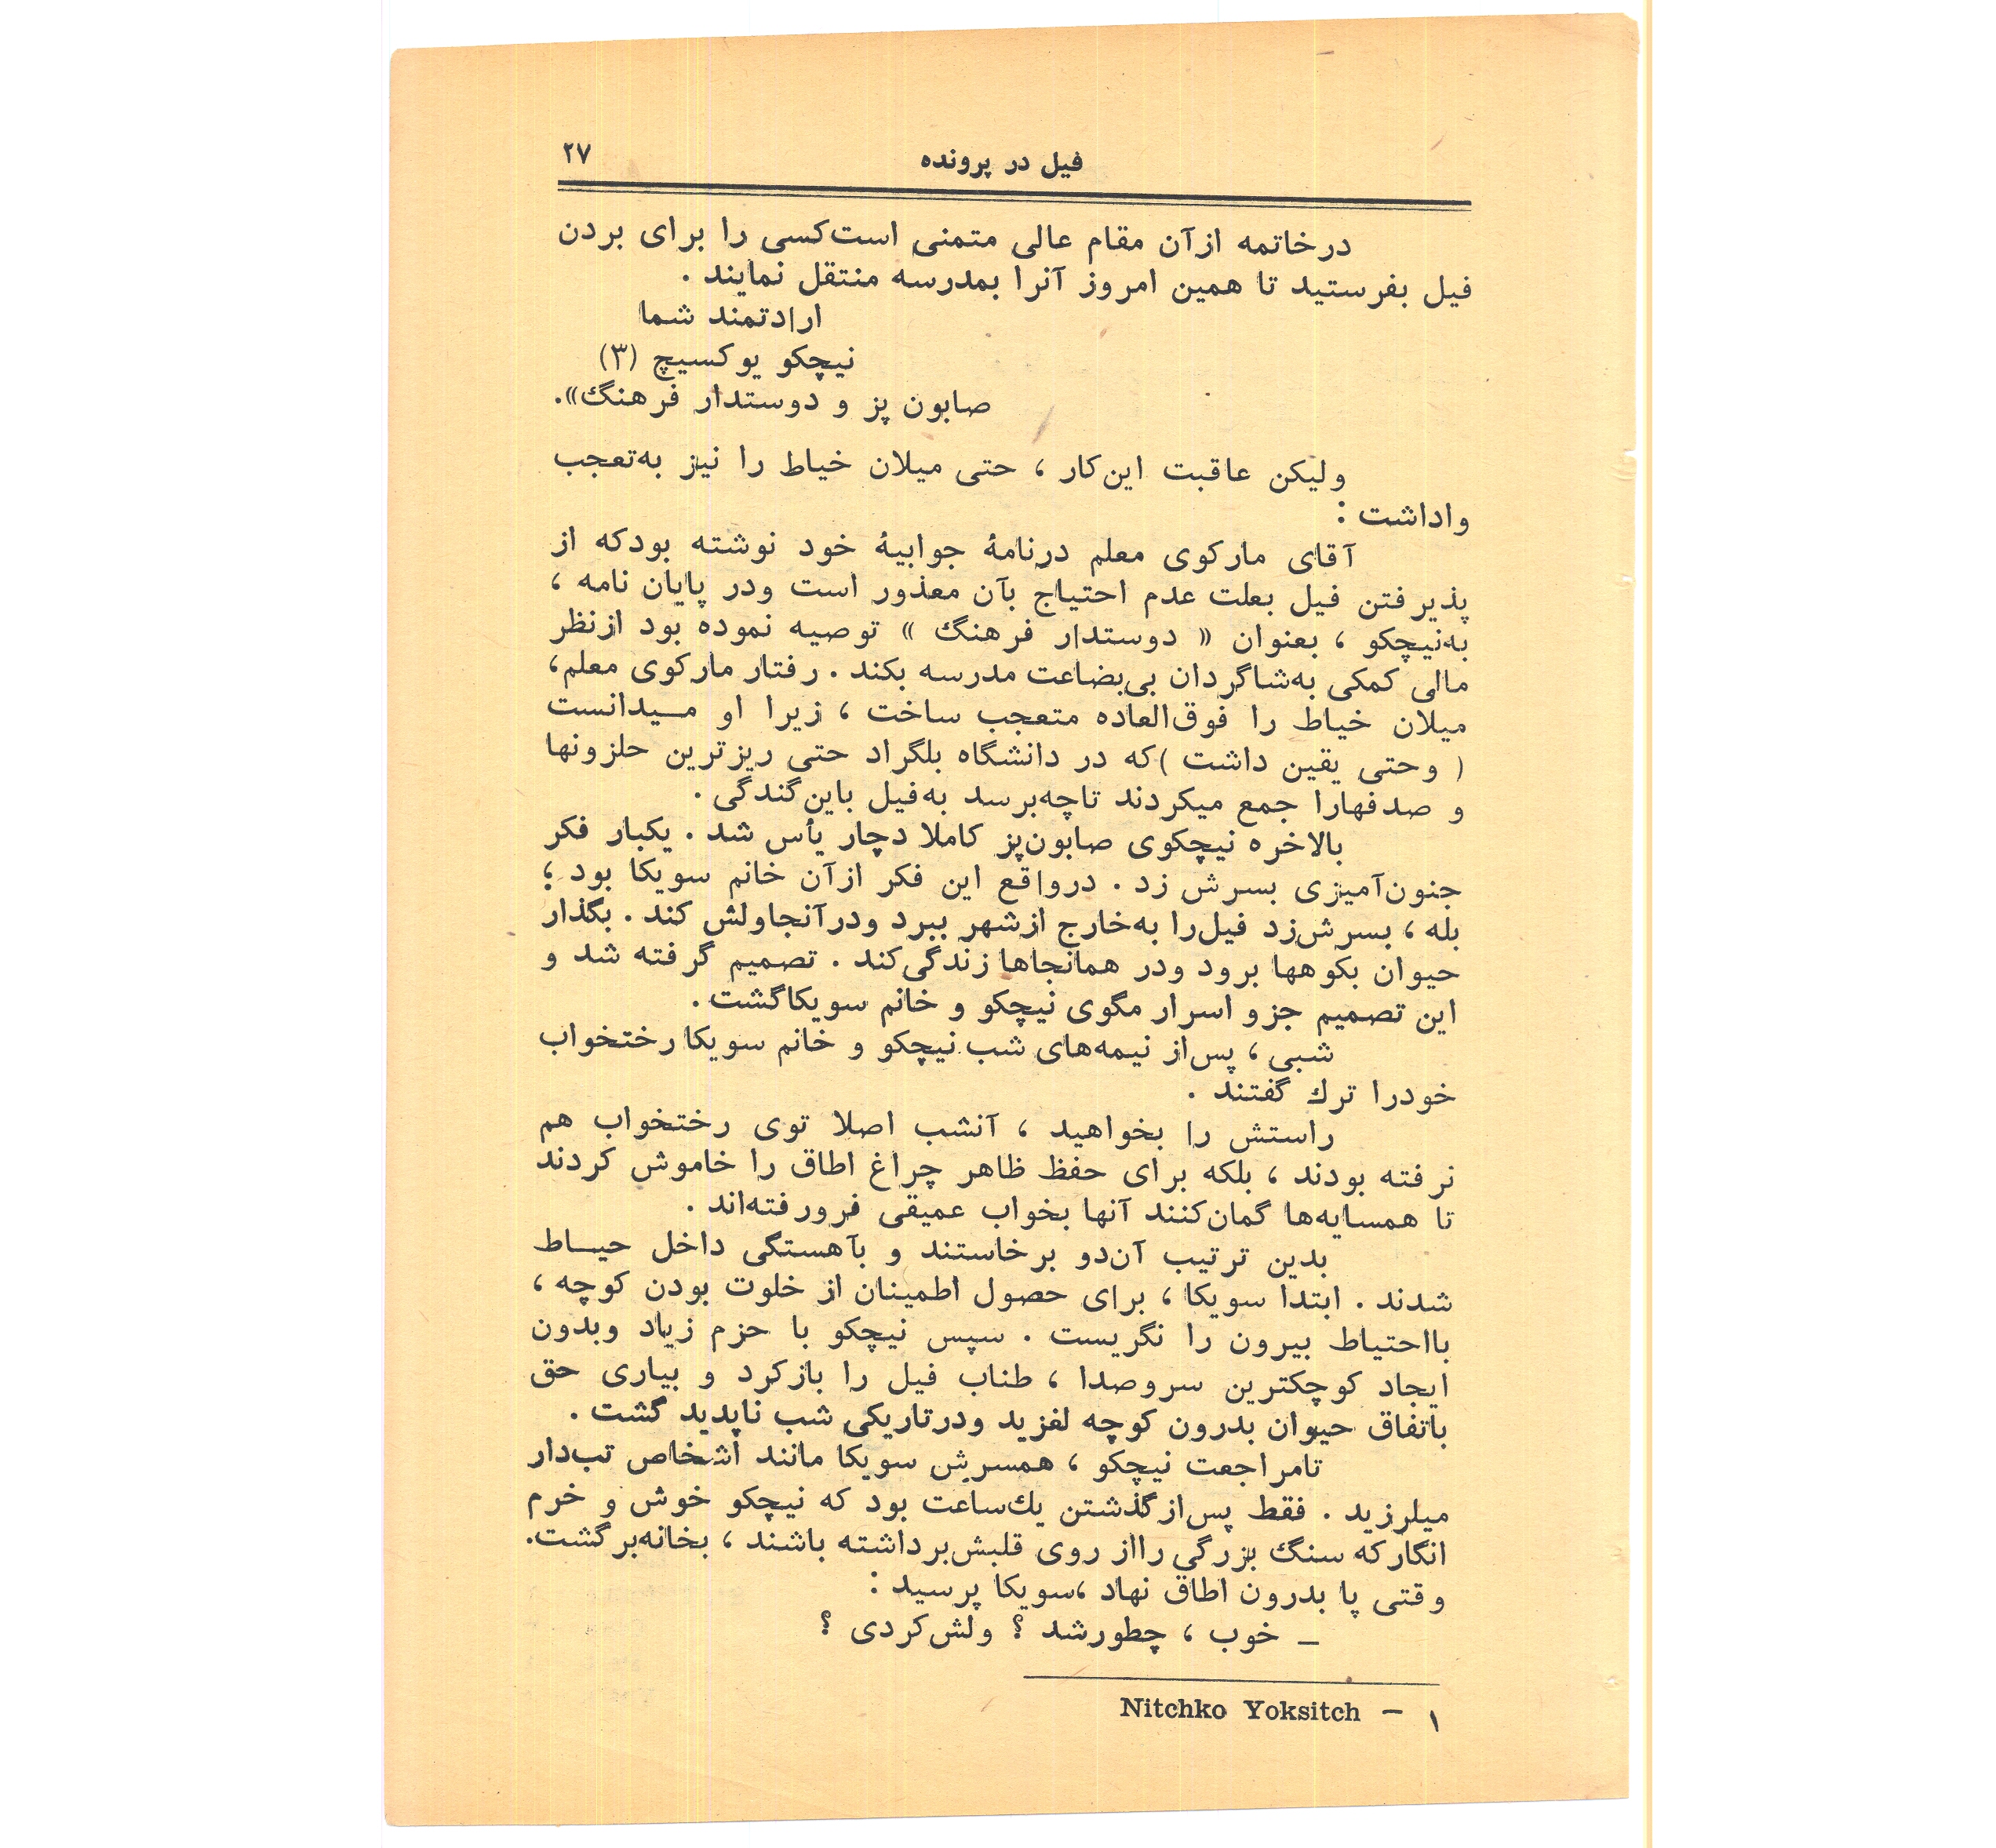 فیل در پرونده ۲۷
درخاتمه ازآن مقام عالی متمنی است‌کسی را برای بردن
فیل بفرستید تا همین امروز آنرا بمدرسه منتقل نمایند .
ارادتمند شما
نیچکو یوکسیچ (۳)
صابون پز و دوستدار فرهنگ».
ولیکن عاقبت این‌کار ، حتی میلان خیاط را نیز به‌تعجب
واداشت :
آقای مارکوی معلم درنامهٔ جوابیهٔ خود نوشته بودکه از
پذیرفتن فیل بعلت عدم احتیاج بآن معذور است ودر پایان نامه ،
به‌نیچکو ، بعنوان « دوستدار فرهنگ » توصیه نموده بود ازنظر
مالی کمکی به‌شاگردان بی‌بضاعت مدرسه بکند . رفتار مارکوی معلم،
میلان خیاط را فوق‌العاده متعجب ساخت ، زیرا او مـیدانست
( وحتی یقین داشت )که در دانشگاه بلگراد حتی ریزترین حلزونها
و صدفهارا جمع میکردند تاچه‌برسد به‌فیل باین‌گندگی .
بالاخره نیچکوی صابون‌پز کاملا دچار یأس شد . یکبار فکر
جنون‌آمیزی بسرش زد . درواقع این فکر ازآن خانم سویکا بود ؛
بله ، بسرش‌زد فیل‌را به‌خارج ازشهر ببرد ودرآنجاولش کند . بگذار
حیوان بکوهها برود ودر همانجاها زندگی‌کند . تصمیم گرفته شد و
این تصمیم جزو اسرار مگوی نیچکو و خانم سویکاگشت.
شبی ، پس‌از نیمه‌های شب نیچکو و خانم سویکا رختخواب
خودرا ترك گفتند .
راستش را بخواهید ، آنشب اصلا توی رختخواب هم
نرفته بودند ، بلکه برای حفظ ظاهر چراغ اطاق را خاموش کردند
تا همسایه‌ها گمان‌کنند آنها بخواب عمیقی فرورفته‌اند .
بدین ترتیب آن‌دو برخاستند و بآهستگی داخل حیـاط
شدند . ابتدا سویکا ، برای حصول اطمینان از خلوت بودن کوچه ،
بااحتیاط بیرون را نگریست . سپس نیچکو با حزم زیاد وبدون
ایجاد کوچکترین سروصدا ، طناب فیل را بازکرد و بیاری حق
باتفاق حیوان بدرون کوچه لغزید ودرتاریکی شب ناپدید گشت .
تامراجعت نیچکو ، همسرش سویکا مانند اشخاص تب‌دار
میلرزید . فقط پس‌ازگذشتن یك‌ساعت بود که نیچکو خوش و خرم
انگارکه سنگ بزرگی رااز روی قلبش‌برداشته باشند ، بخانه‌برگشت.
وقتی پا بدرون اطاق نهاد ،سویکا پرسید :
ـ خوب ، چطورشد ؟ ولش‌کردی ؟
۱ – Nitchko Yoksitch